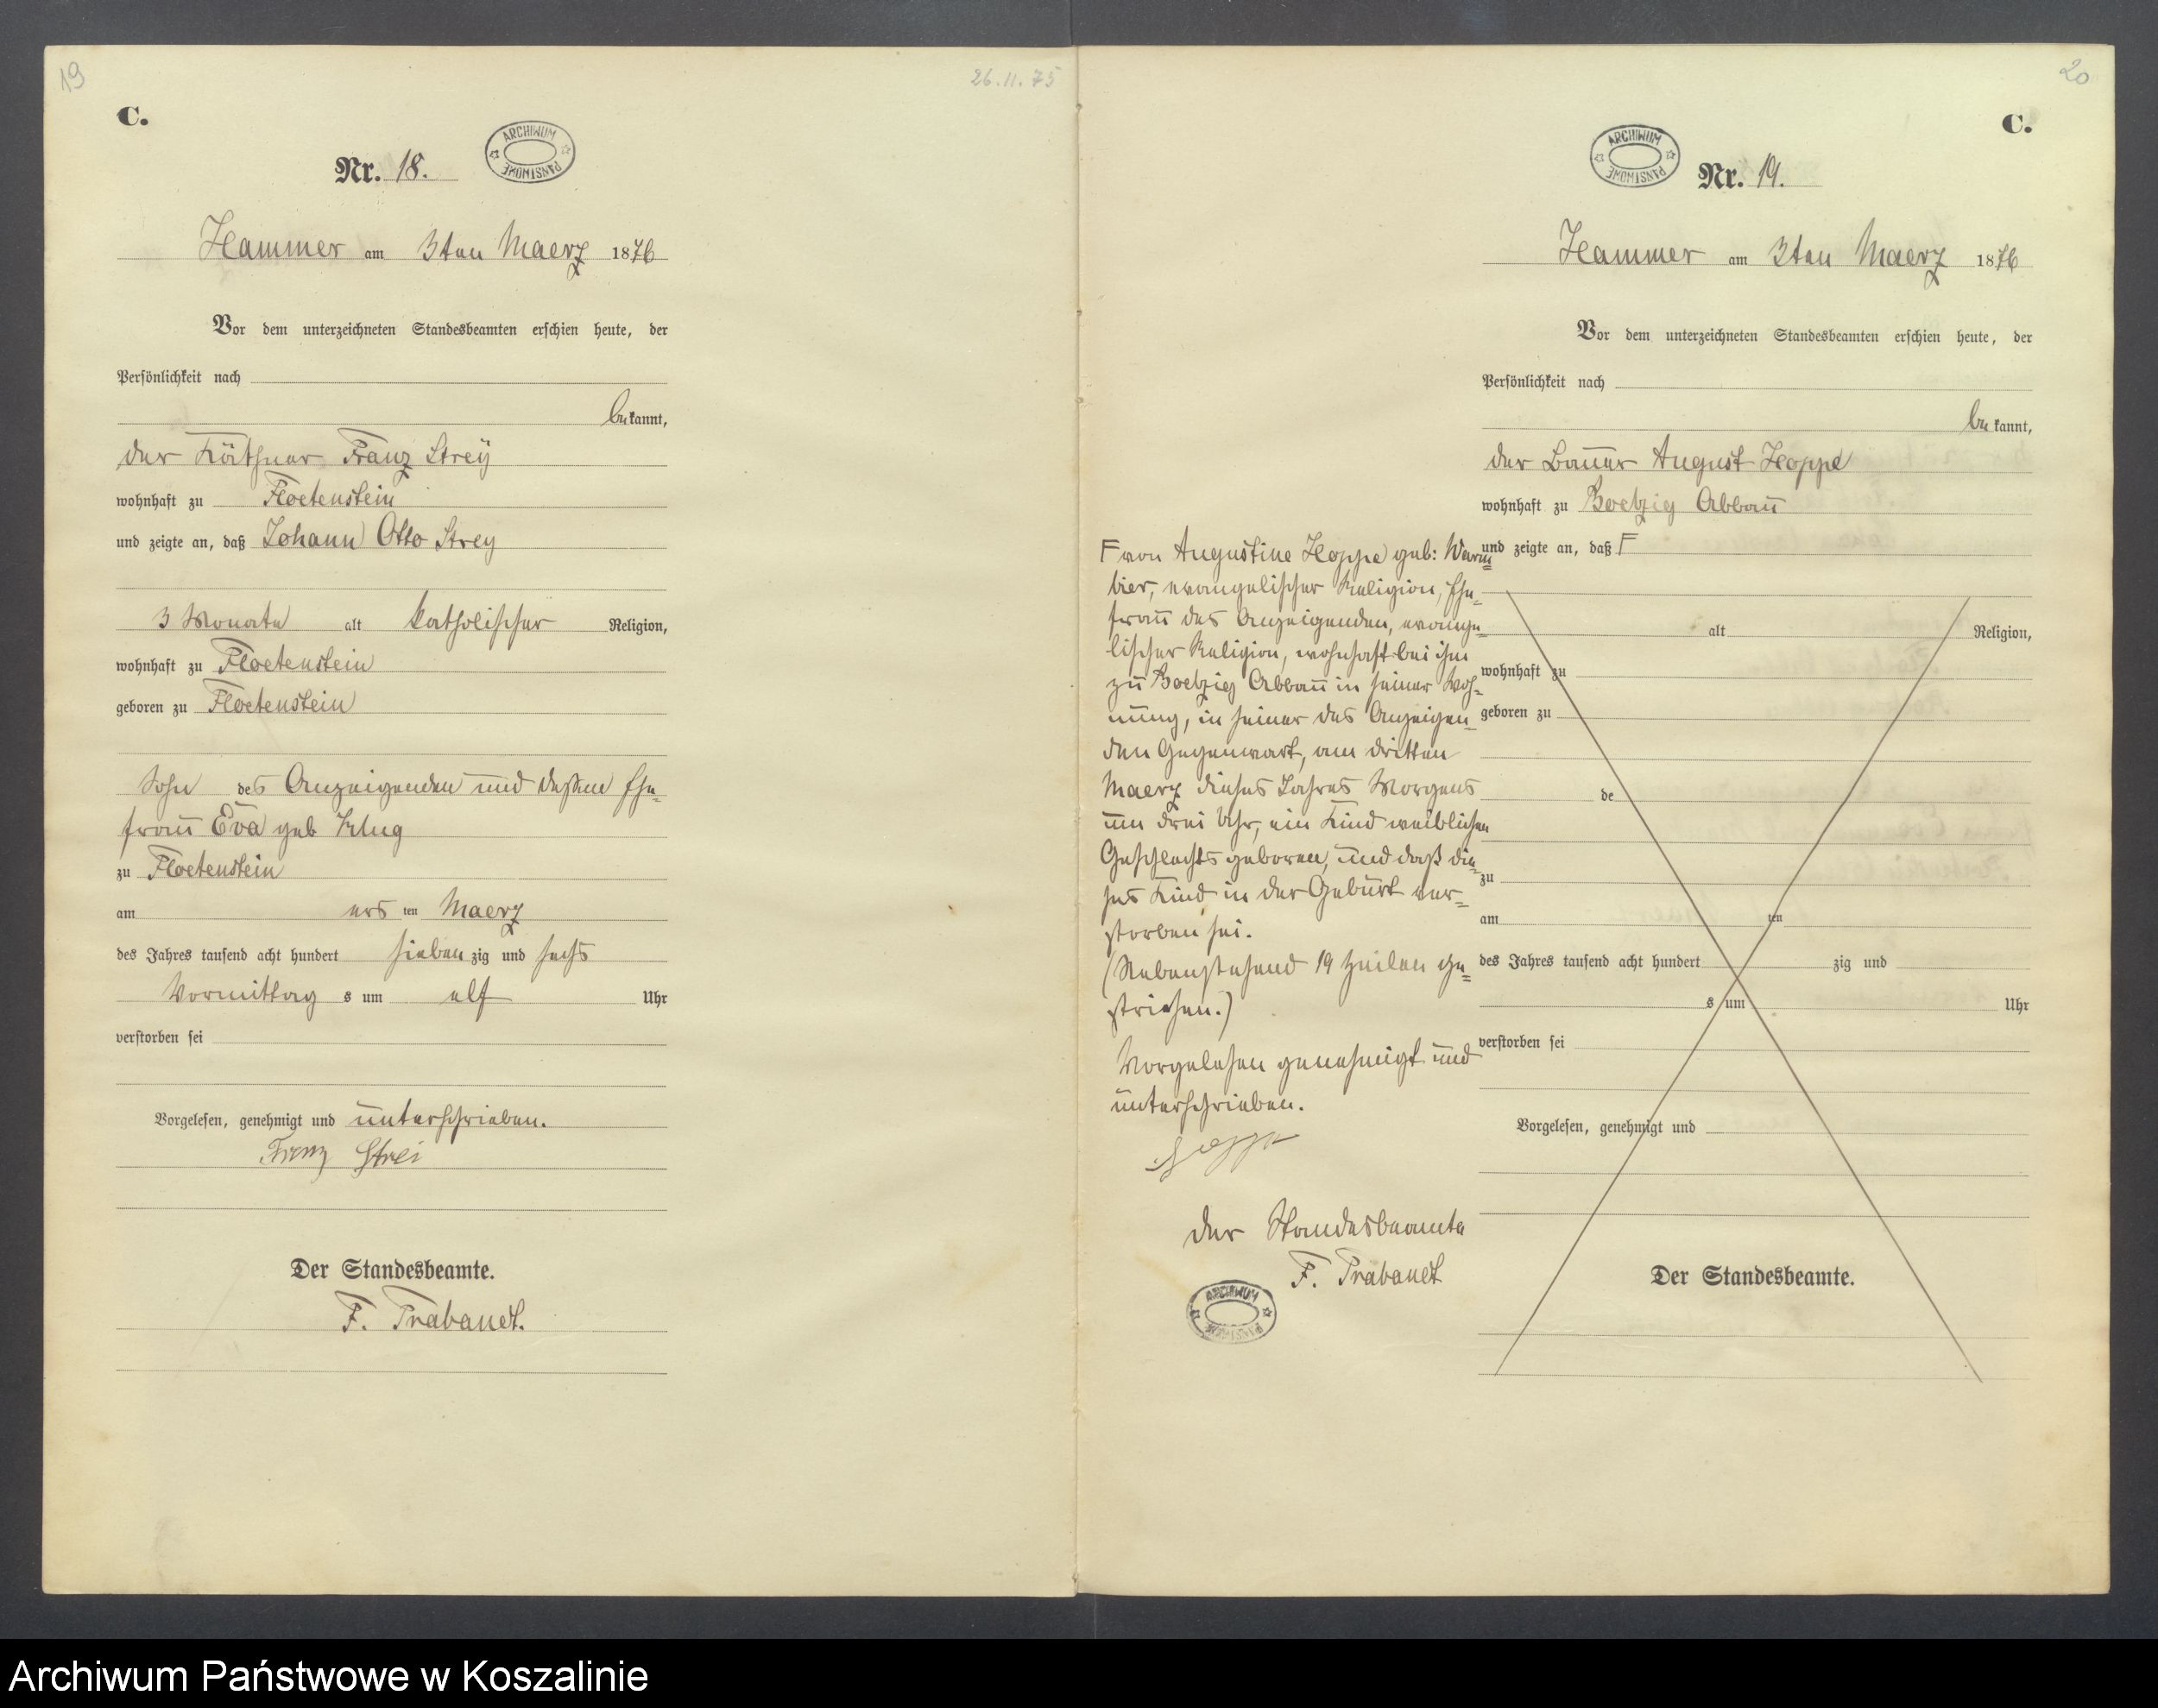 19
26.11.75
C.
Nr. 18.
ARCHIWUM PAŃSTWOWE
Hammer am 3ten Maerz 1876
Vor dem unterzeichneten Standesbeamten erschien heute, der
Persönlichkeit nach
bekannt,
der Käthner Franz Streÿ
wohnhaft zu Floetenstein
und zeigte an, daß Johann Otto Strey
3 Monate alt katholischer Religion,
wohnhaft zu Floetenstein
geboren zu Floetenstein
Sohn des Anzeigenden und dessen Ehe-
frau Eva geb Klug
zu Floetenstein
am ersten Maerz
des Jahres tausend acht hundert siebenzig und sechs
Vormittags um elf Uhr
verstorben sei
Vorgelesen, genehmigt und unterschrieben.
Franz Strei
Der Standesbeamte.
F. Trabandt.
20
C.
ARCHIWUM PAŃSTWOWE
Nr. 19.
Hammer am 3ten Maerz 1876
Vor dem unterzeichneten Standesbeamten erschien heute, der
Persönlichkeit nach
bekannt,
der Bauer August Hoppe
wohnhaft zu Boelzig Abbau
und zeigte an, daß F
F von Augustine Hoppe geb: Warm-
bier, evangelischer Religion, Ehe-
frau des Anzeigenden, evange-
lischer Religion, wohnhaft bei ihm
zu Boelzig Abbau in seiner Woh-
nung, in seiner des Anzeigen-
den Gegenwart, am dritten
Maerz dieses Jahres Morgens
um drei Uhr, ein Kind weiblichen
Geschlechts geboren, und daß die-
ses Kind in der Geburt ver-
storben sei.
(Nebenstehend 19 Zeilen ge-
strichen.)
Vorgelesen genehmigt und
unterschrieben.
Hoppe
Der Standesbeamte
F. Trabandt
ARCHIWUM PAŃSTWOWE
alt Religion,
wohnhaft zu
geboren zu
de
zu
am ten
des Jahres tausend acht hundert zig und
s um Uhr
verstorben sei
Vorgelesen, genehmigt und
Der Standesbeamte.
Archiwum Państwowe w Koszalinie